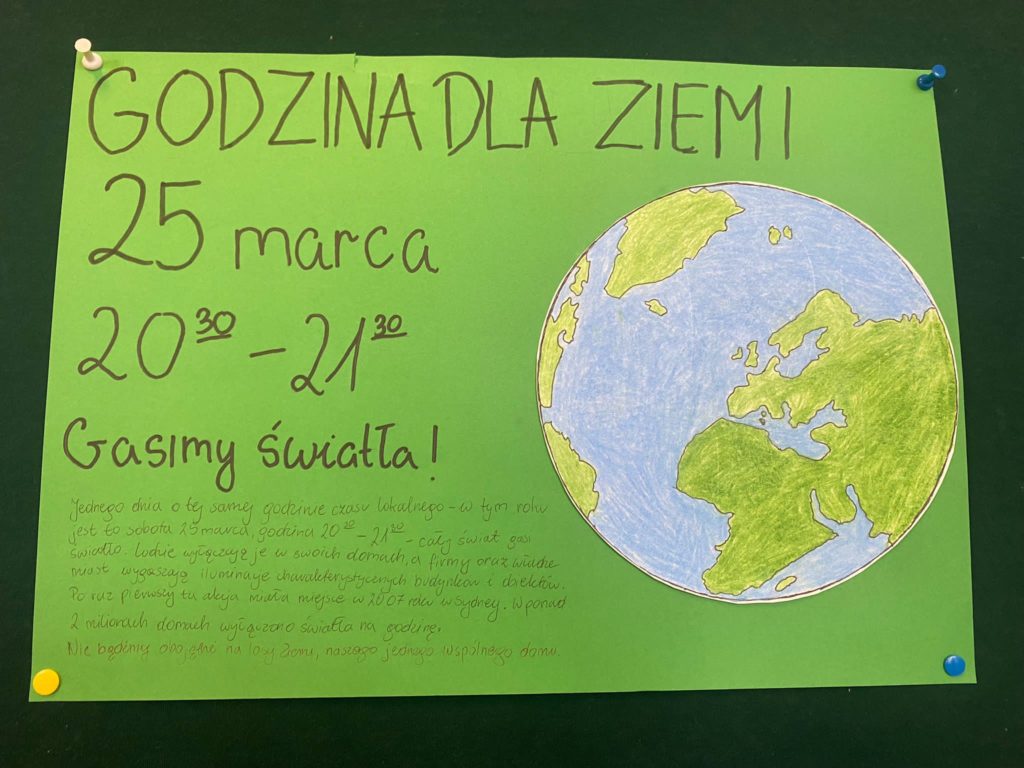 GODZINA DLA ZIEMI
25 marca
20³⁰ - 21³⁰
Gasimy światła!
Jednego dnia o tej samej godzinie czasu lokalnego - w tym roku
jest to sobota 25 marca, godzina 20³⁰ - 21³⁰ - cały świat gasi
światło. Ludzie wyłączają je w swoich domach, a firmy oraz władze
miast wygaszają iluminacje charakterystycznych budynków i obiektów.
Po raz pierwszy ta akcja miała miejsce w 2007 roku w Sydney. W ponad
2 milionach domach wyłączono światła na godzinę.
Nie bądźmy obojętni na losy Ziemi, naszego jednego wspólnego domu.